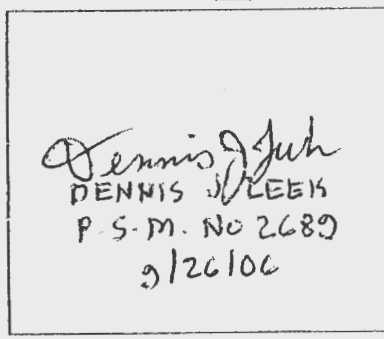 Dennis J
DENNIS J LEEK
P.S.M. No 2689
9/26/06